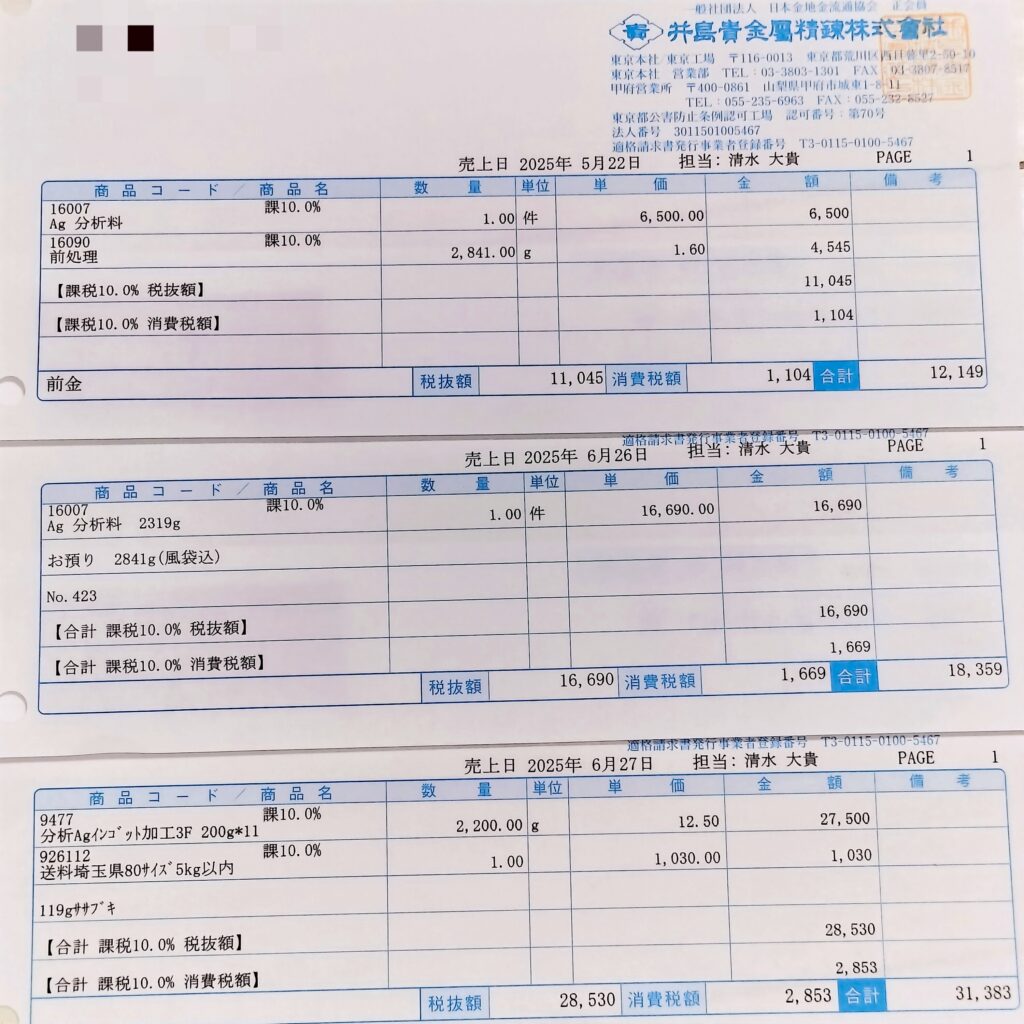 一般社団法人 日本金地金流通協会 正会員
貴 井島貴金属精錬株式會社
東京本社/東京工場 〒116-0013 東京都荒川区西日暮里2-50-10
東京本社 営業部 TEL:03-3803-1301 FAX:03-3807-8517
甲府営業所 〒400-0861 山梨県甲府市城東1-8-11
TEL:055-235-6963 FAX:055-232-8527
東京都公害防止条例認可工場 認可番号:第70号
法人番号 3011501005467
適格請求書発行事業者登録番号 T3-0115-0100-5467
売上日 2025年 5月22日 担当:清水 大貴 PAGE 1
商品コード / 商品名 数量 単位 単価 金額 備考
16007 課10.0%
Ag 分析料 1.00 件 6,500.00 6,500
16090 課10.0%
前処理 2,841.00 g 1.60 4,545
【課税10.0% 税抜額】 11,045
【課税10.0% 消費税額】 1,104
前金 税抜額 11,045 消費税額 1,104 合計 12,149
適格請求書発行事業者登録番号 T3-0115-0100-5467
売上日 2025年 6月26日 担当:清水 大貴 PAGE 1
商品コード / 商品名 数量 単位 単価 金額 備考
16007 課10.0%
Ag 分析料 2319g 1.00 件 16,690.00 16,690
お預り 2841g(風袋込)
No.423
【合計 課税10.0% 税抜額】 16,690
【合計 課税10.0% 消費税額】 1,669
税抜額 16,690 消費税額 1,669 合計 18,359
適格請求書発行事業者登録番号 T3-0115-0100-5467
売上日 2025年 6月27日 担当:清水 大貴 PAGE 1
商品コード / 商品名 数量 単位 単価 金額 備考
9477 課10.0%
分析Agｲﾝｺﾞｯﾄ加工3F 200g*11 2,200.00 g 12.50 27,500
926112 課10.0%
送料埼玉県80ｻｲｽﾞ5kg以内 1.00 1,030.00 1,030
119gｻｻﾌﾞｷ
【合計 課税10.0% 税抜額】 28,530
【合計 課税10.0% 消費税額】 2,853
税抜額 28,530 消費税額 2,853 合計 31,383